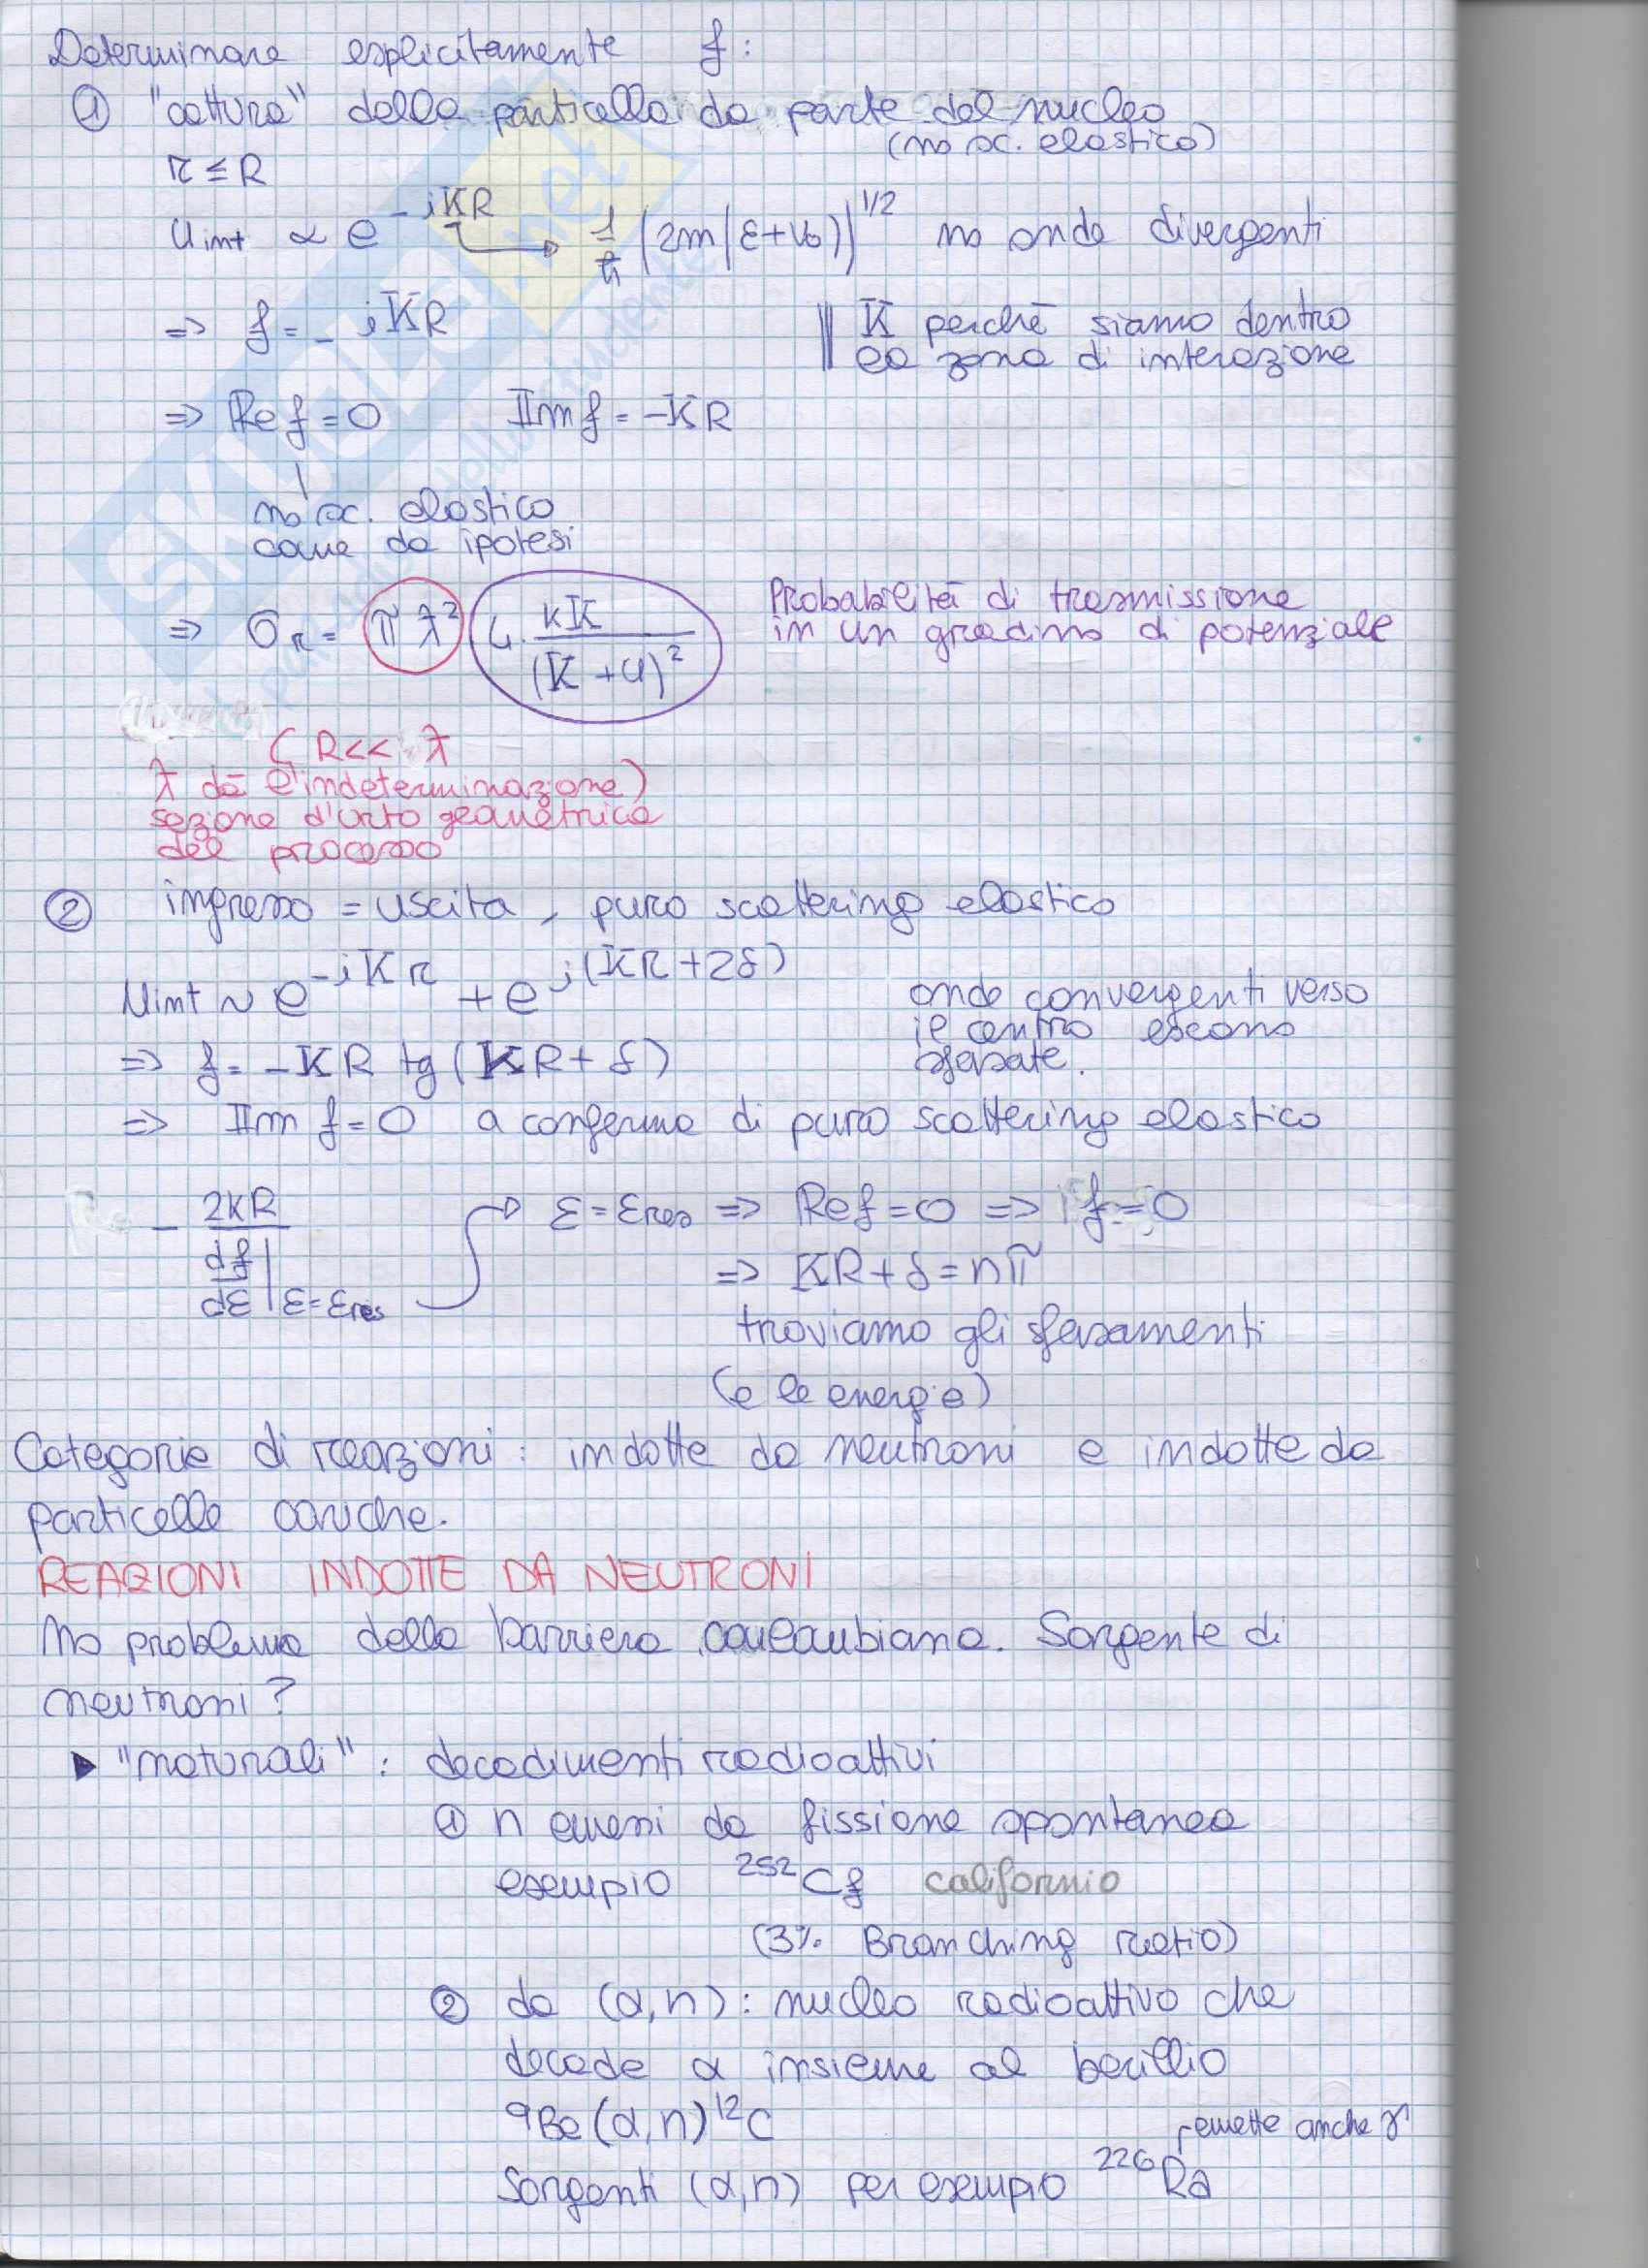 Determinare esplicitamente f:
① "cattura" della particella da parte del nucleo
(no sc. elastico)
r ≤ R
Uint ∝ e^{-iKR} → 1/ħ (2m(ε+V₀))^{1/2} no onde divergenti
=> f = -iKR || K perché siamo dentro
la zona di interazione
=> Re f = 0 Im f = -KR
no sc. elastico
come da ipotesi
=> σr = πƛ² 4· kK/(K+k)² Probabilità di trasmissione
in un gradino di potenziale
(R<< ƛ
ƛ dà l'indeterminazione)
sezione d'urto geometrica
del processo
② ingresso = uscita, puro scattering elastico
Uint ~ e^{-iKr} + e^{i(Kr+2δ)} onde convergenti verso
il centro escono
sfasate.
=> f = -KR tg(KR+δ)
=> Im f=0 a conferma di puro scattering elastico
- 2kR / (df/dε |ε=εres) → ε=εres => Re f=0 => f=0
=> KR+δ=nπ
troviamo gli sfasamenti
(e le energie)
Categorie di reazioni: indotte da neutroni e indotte da
particelle cariche.
REAZIONI INDOTTE DA NEUTRONI
No problema della barriera coulombiana. Sorgente di
neutroni?
▶ "naturali": decadimenti radioattivi
① n emessi da fissione spontanea
esempio ²⁵²Cf californio
(3% Branching ratio)
② da (α,n): nucleo radioattivo che
decade α insieme al berillio
⁹Be(α,n)¹²C
emette anche γ
Sorgenti (α,n) per esempio ²²⁶Ra
SKUOLA.net